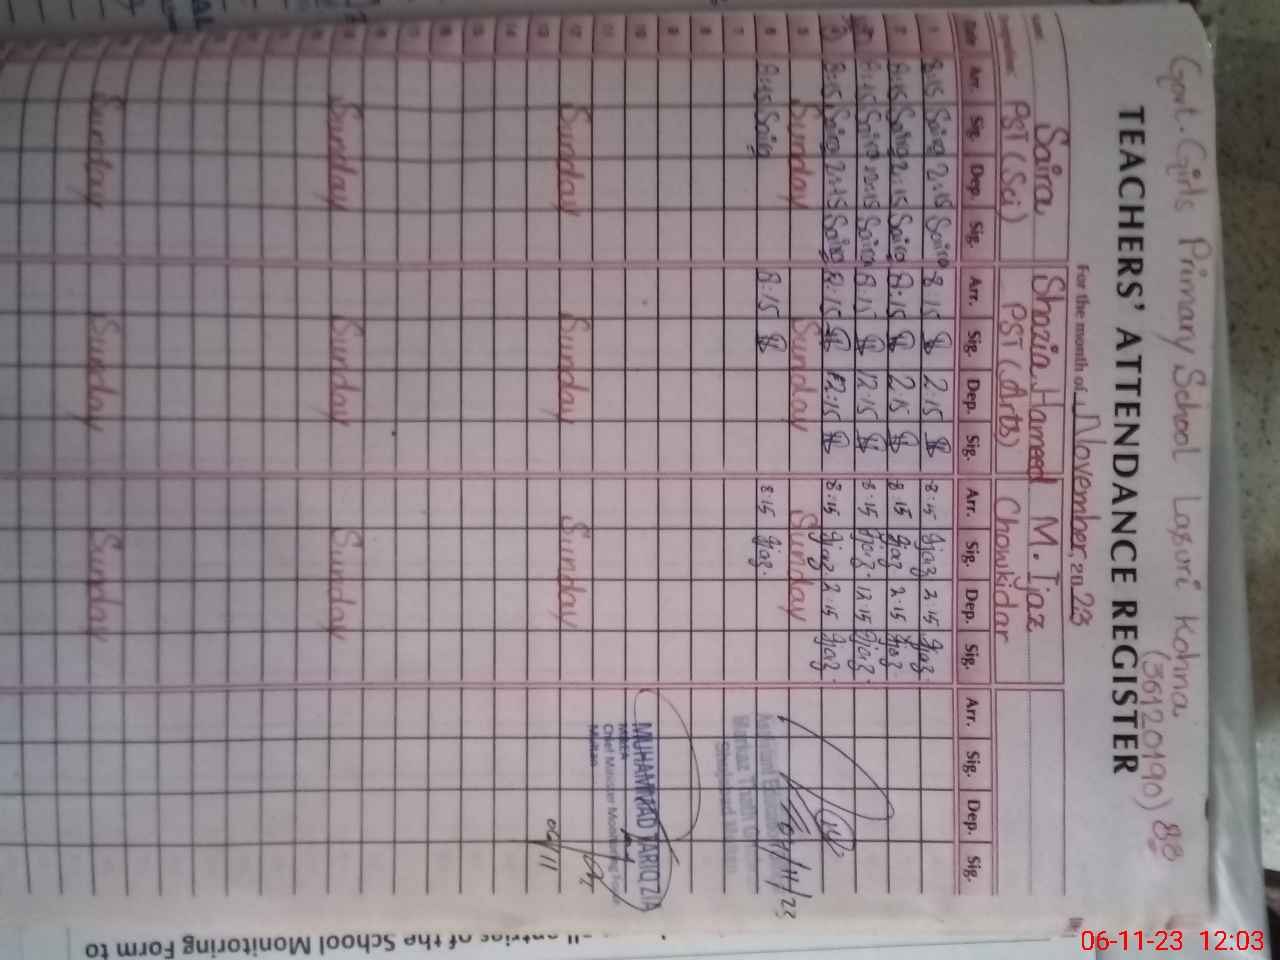 Govt. Girls Primary School Lasuri Kohna
(36120190) 88
TEACHERS' ATTENDANCE REGISTER
For the month of November, 2023
Saira Shazia Hameed M. Ijaz
Designation: PST (Sci) PST (Arts) Chowkidar
Date Arr. Sig. Dep. Sig. Arr. Sig. Dep. Sig. Arr. Sig. Dep. Sig. Arr. Sig. Dep. Sig.
1 8:15 Saira 2:15 Saira 8:15 2:15 8:15 Ijaz 2:15 Ijaz
2 8:15 Saira 2:15 Saira 8:15 2:15 8:15 Ijaz 2:15 Ijaz
3 8:15 Saira 12:15 Saira 8:15 12:15 8:15 Ijaz 12:15 Ijaz
4 8:15 Saira 2:15 Saira 8:15 2:15 8:15 Ijaz 2:15 Ijaz
5 Sunday Sunday Sunday
6 8:15 Saira 8:15 8:15 Ijaz
7
8
9
10
11
12 Sunday Sunday Sunday
13
14
15
16
17
18
Sunday Sunday Sunday
Sunday Sunday Sunday
/11/23
MUHAMMAD TARIQ ZIA
MEA
Chief Minister Monitoring Force
Multan
06/11
entries of the School Monitoring Form to
06-11-23 12:03